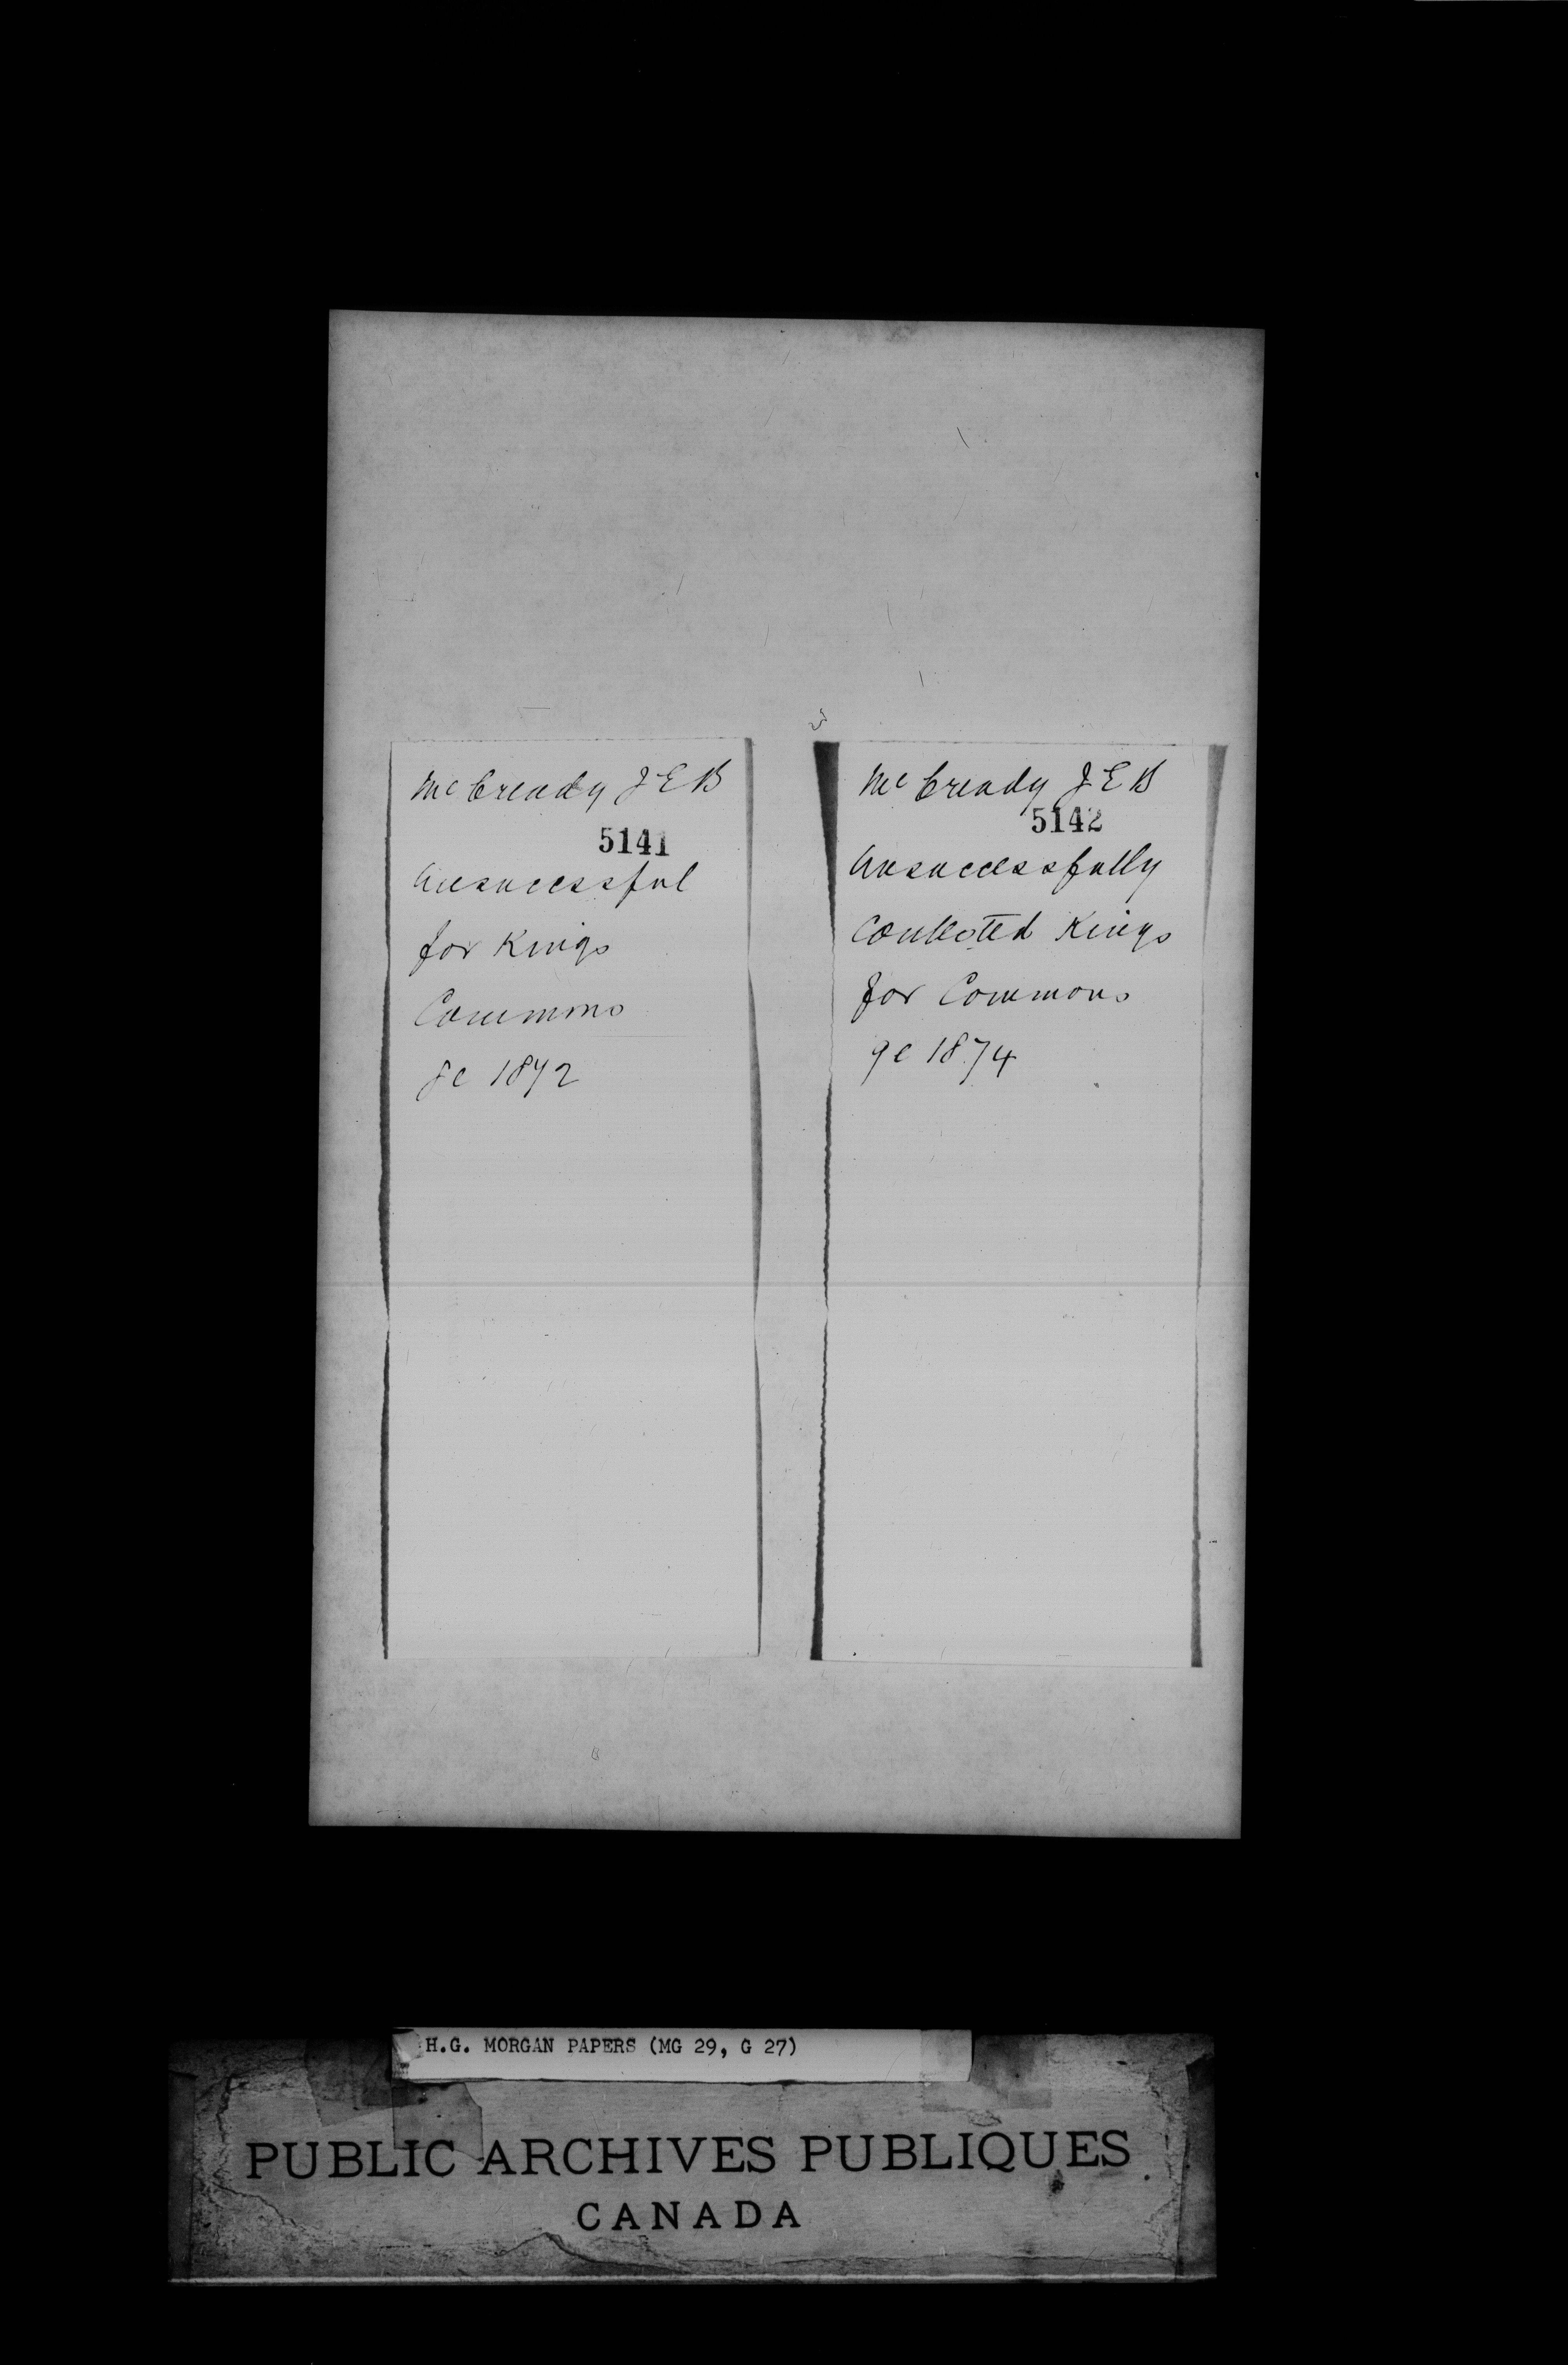 McCready J E B
5141
Unsuccessful
for Kings
Commons
ge 1872
McCready J E B
5142
Unsuccessfully
Contested Kings
for Commons
ge 1874
H.G. MORGAN PAPERS (MG 29, G 27)
PUBLIC ARCHIVES PUBLIQUES
CANADA